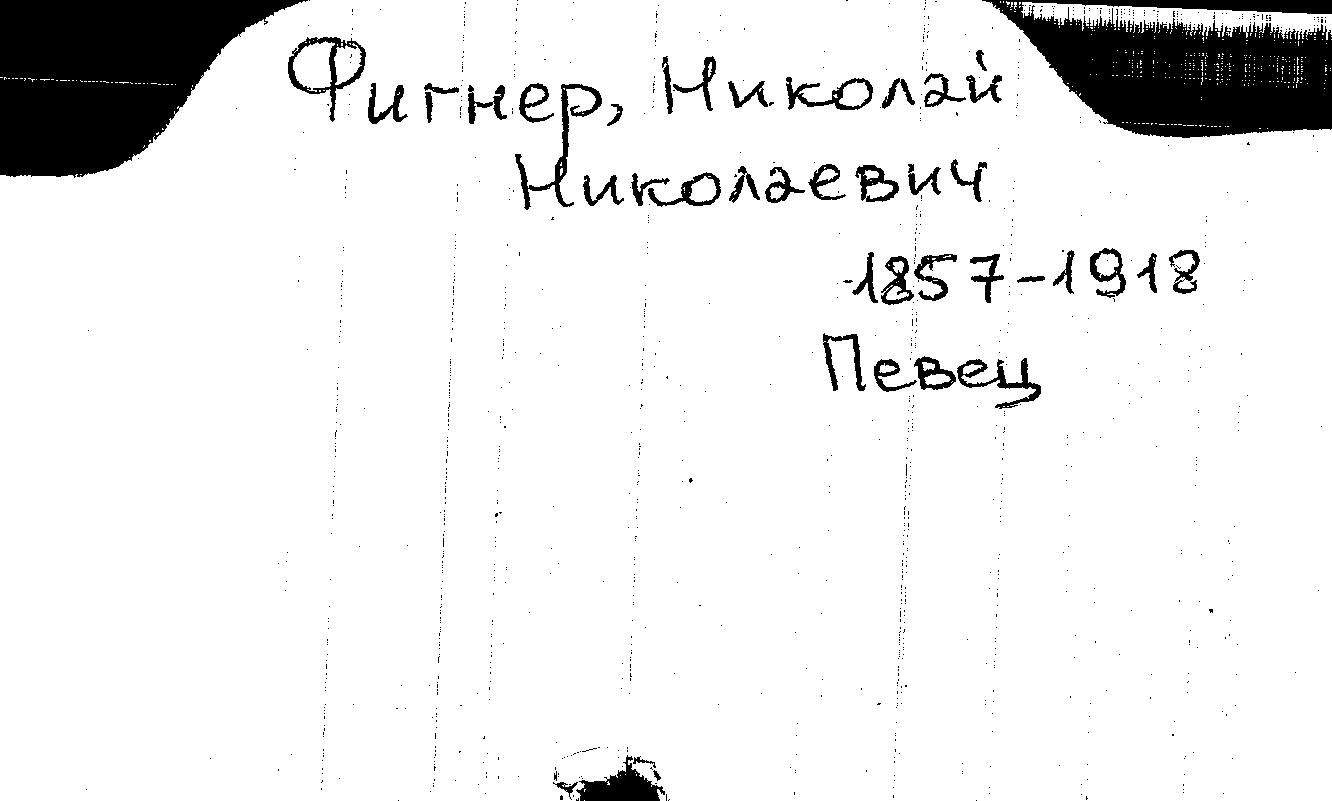 Фигнер, Николай
Николаевич
1857-1918
Певец